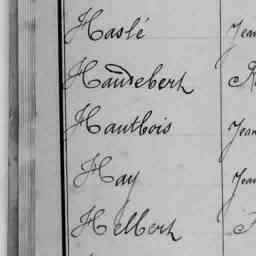 Haslé Jean
Haudebert
Hautbois Jean
Hay Jean
Helbert